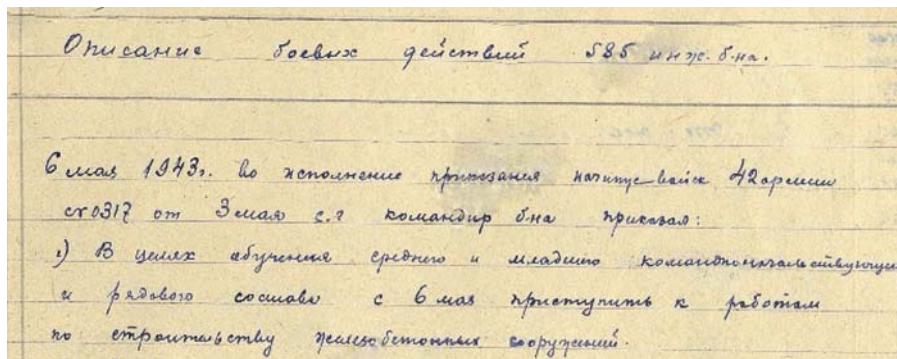 Описание боевых действий 585 инж. б-на.
6 мая 1943г. во исполнение приказания войск 42 армии
0317 от 3 мая с.г командир б-на приказал:
1) В целях обучения среднего и младшего командноначальствующего
и рядового состава с 6 мая приступить к работам
по строительству железобетонных сооружений.